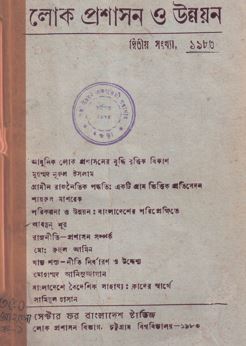 লোক প্রশাসন ও উন্নয়ন
দ্বিতীয় সংখ্যা, ১৯৮৩
আধুনিক লোক প্রশাসনের বুদ্ধি বৃত্তিক বিকাশ
মুহম্মদ নূরুল ইসলাম
গ্রামীন রাজনৈতিক পদ্ধতি: একটি গ্রাম ভিত্তিক প্রতিবেদন
পরিকল্পনা ও উন্নয়ন: বাংলাদেশের পরিপ্রেক্ষিতে
আবদুন নূর
রাজনীতি-প্রশাসন সম্পর্ক
মো: রুহুল আমিন
খাস শস্য-নীতি নির্ধারণ ও উদ্দেশ্য
মোহাম্মদ আনিসুজ্জামান
বাংলাদেশে বৈদেশিক সাহায্য: কাদের স্বার্থে
সামিনুল হাসান
সেন্টার ফর বাংলাদেশ স্টাডিজ
লোক প্রশাসন বিভাগ, চট্টগ্রাম বিশ্ববিদ্যালয়-১৯৮৩